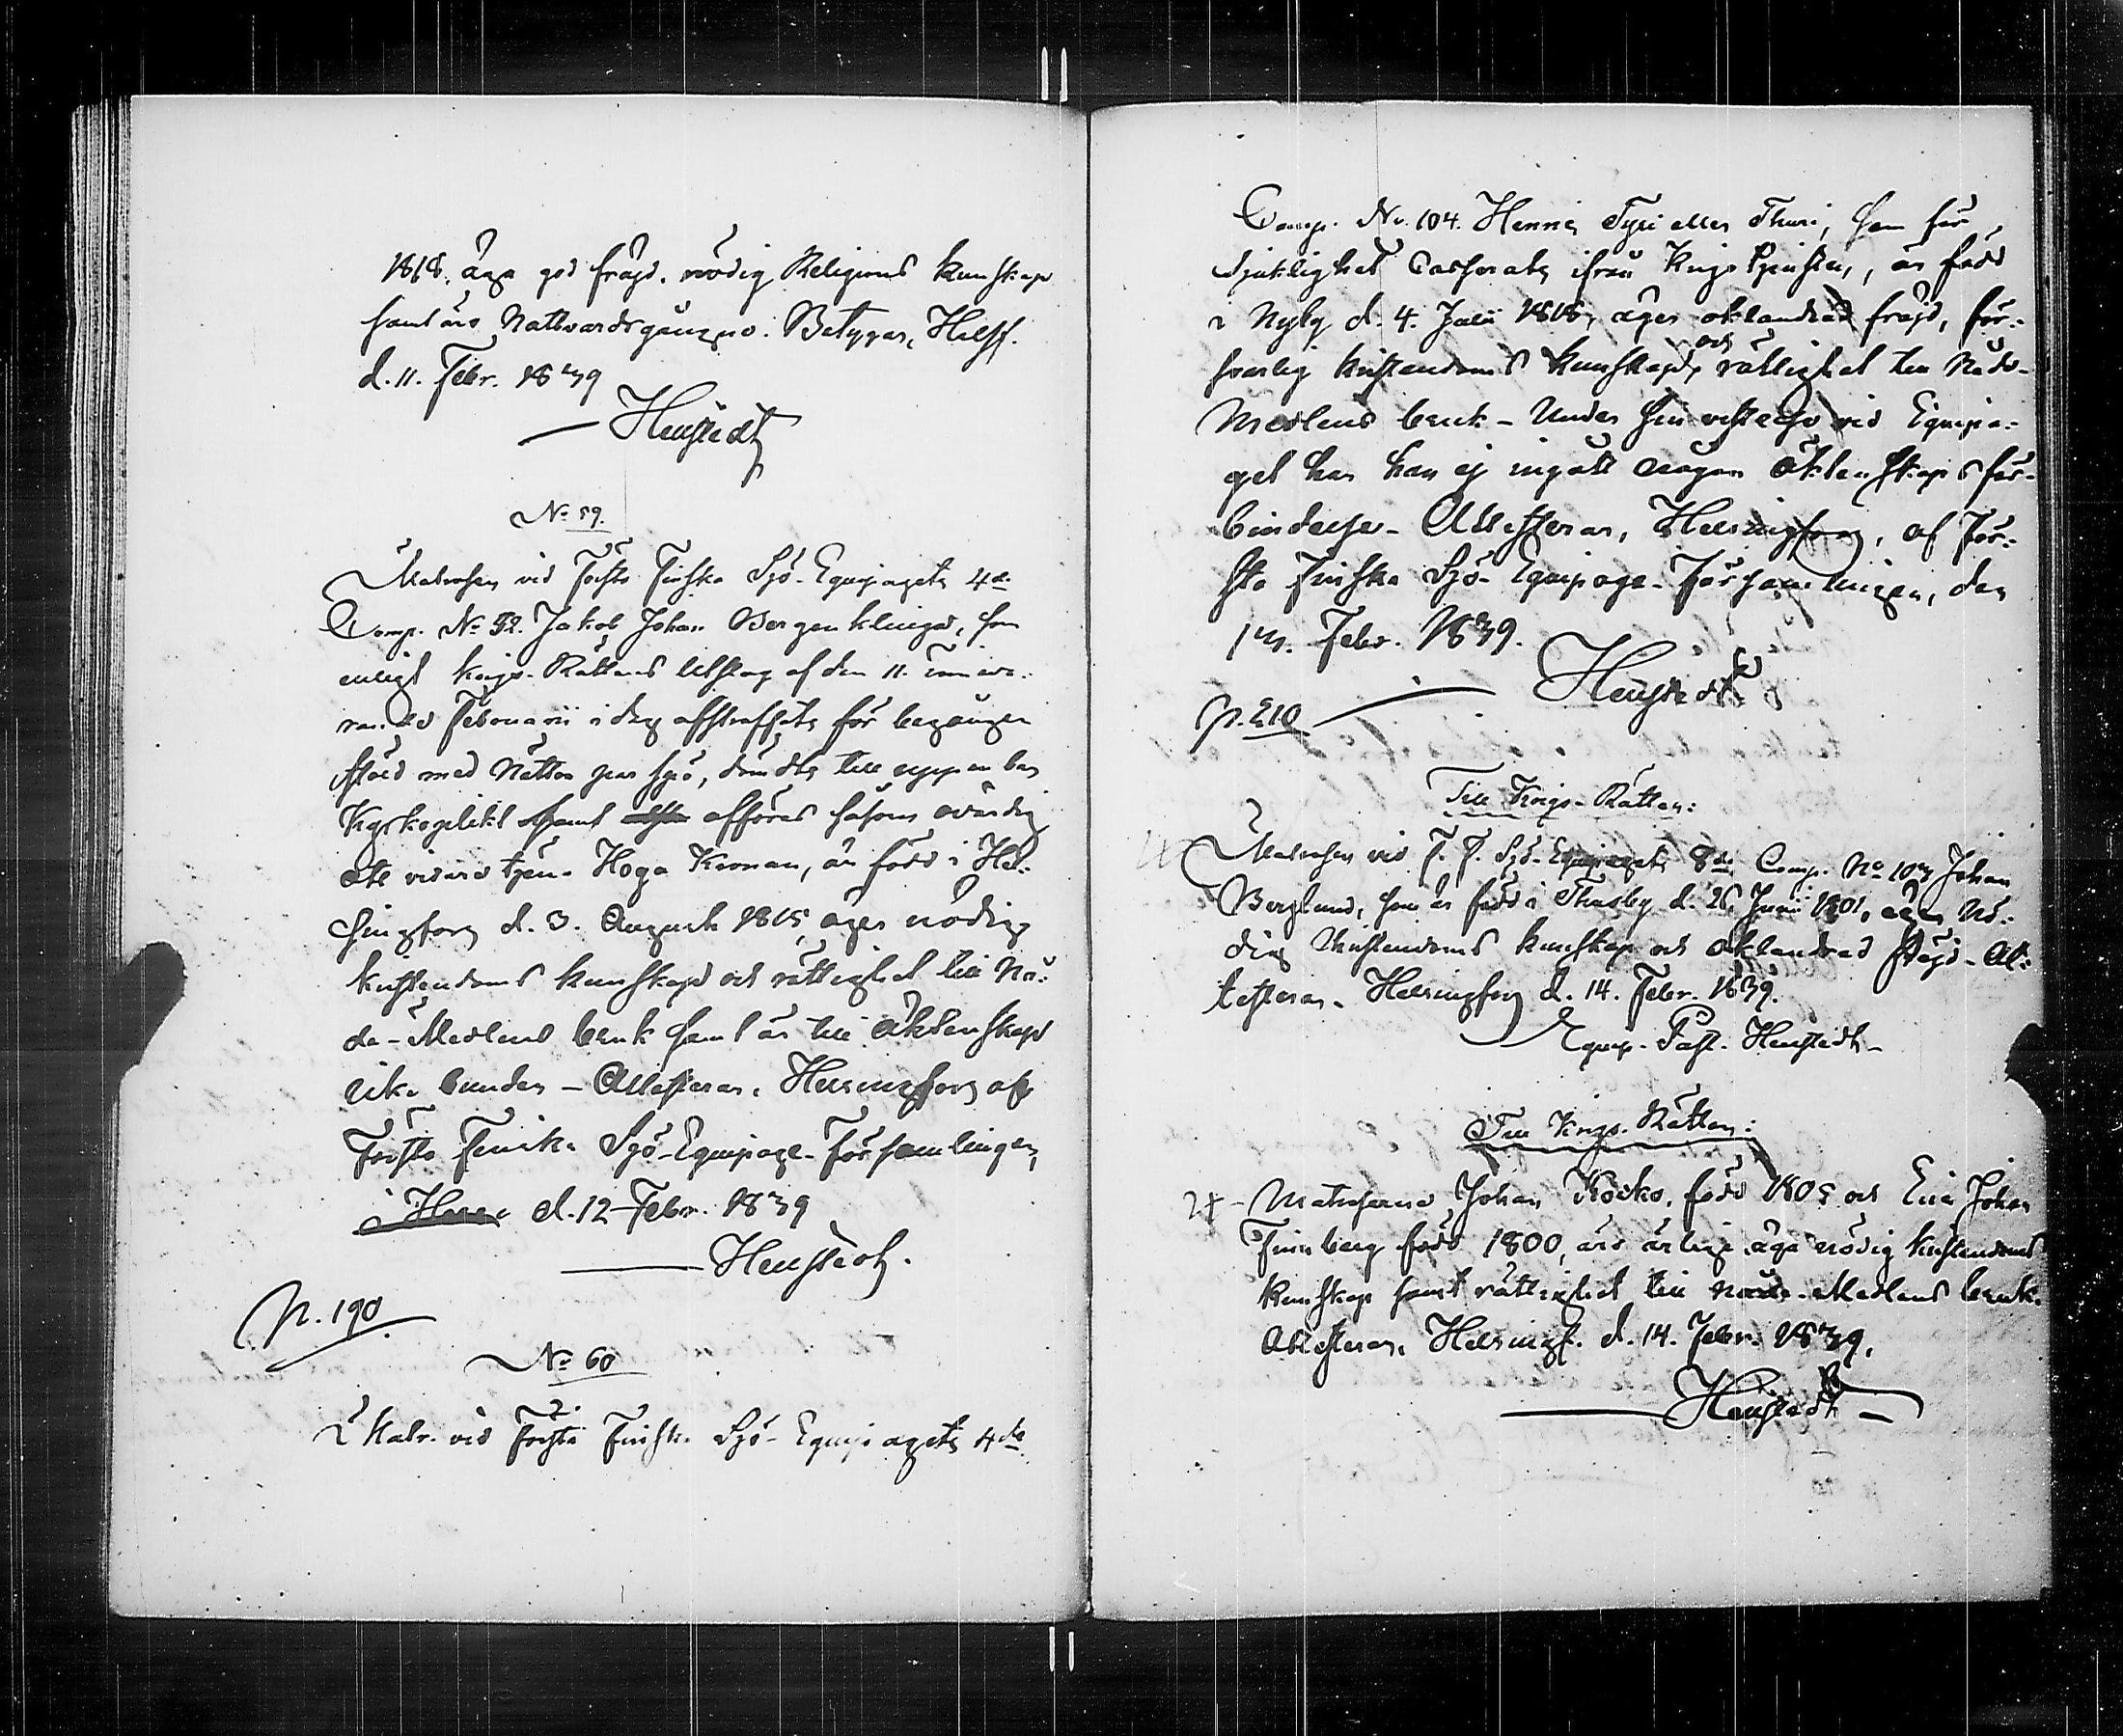 1818. äga god fräjd. nödig Religions kunskap
samt äro Nattvardsgångne. Betygar, Helsf.
d. 11. Febr. 1839
Heustedt
No 59.
Matrosen vid Första Finska Sjö-Equipagets 4de
Comp. No 52. Jakob Johan Bergenklinga, som
enligt Krigs-Rättens Utslag af den 11. inneva-
rande Februarii i dag afstraffats för begången
stöld med Nio par spö, dömdts till uppenbar
Kyrkoplikt samt afföras såsom ovärdig
att vidare tjena Höga Kronan, är född i Hel-
singfors d. 3. Augusti 1815, äger nödig
kristendoms kunskap och rättighet till Nå-
da-Medlens bruk samt är till äktenskap
icke bunden - Attesterar, Helsingfors af
Första Finska Sjö-Equipage-Församlingen,
d. 12 Febr. 1839
Heustedt.
N. 190
No 60
Matr. vid Första Finska Sjö-Equipagets 4de
Comp. No. 104. Henric Tyri eller Thuri, som för
sjuklighet Casserats ifrån Krigstjensten, är född
i Nyby d. 4. Julii 1818, äger oklandrad fräjd, för-
svarlig kristendoms kunskap och rättighet till Nåde-
Medlens bruk - Under sin vistelse vid Equipa-
get har han ej ingått någon äktenskaps för-
bindelse - Attesterar, Helsingfors, af För-
sta Finska Sjö-Equipage-Församlingen, den
13. Febr. 1839.
Heustedt
N. 210
Till Krigs-Rätten:
Matrosen vid F. F. Sjö-Equipagets 8de Comp. No 103 Johan
Berglund, som är född i Thusby d. 26 Junii 1801, äger Nö-
dig Christendoms kunskap och oklandrad fräjd - At-
testerar - Helsingfors d. 14. Febr. 1839.
Equip. Past. Heustedt -
Till Krigs-Rätten:
Matroserne Johan Kocko, född 1805 och Eric Johan
Finnberg född 1800, äro ärlige äga nödig kristendoms
kunskap samt rättighet till Nåde-Medlens bruk.
Attesterar. Helsingf. d. 14. Febr. 1839.
Heustedt -